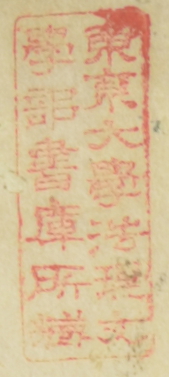 東京大學法理文
學部書庫所轄